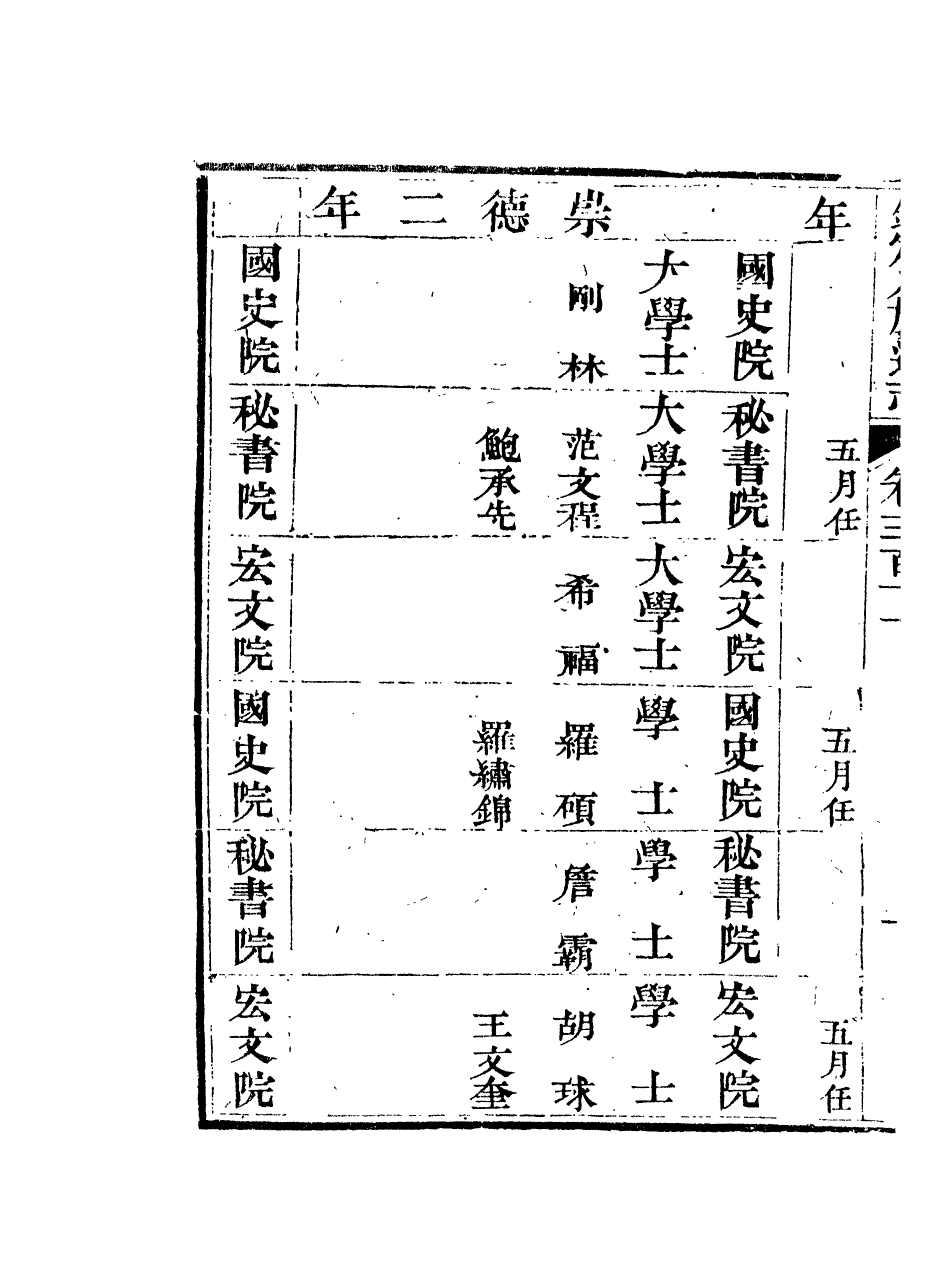 卷三百一
年 五月任 五月任 五月任
國史院 秘書院 宏文院 國史院 秘書院 宏文院
大學士 大學士 大學士 學士 學士 學士
崇德二年
剛林 范文程 希福 羅碩 詹霸 胡球
鮑承先 羅繡錦 王文奎
國史院 秘書院 宏文院 國史院 秘書院 宏文院